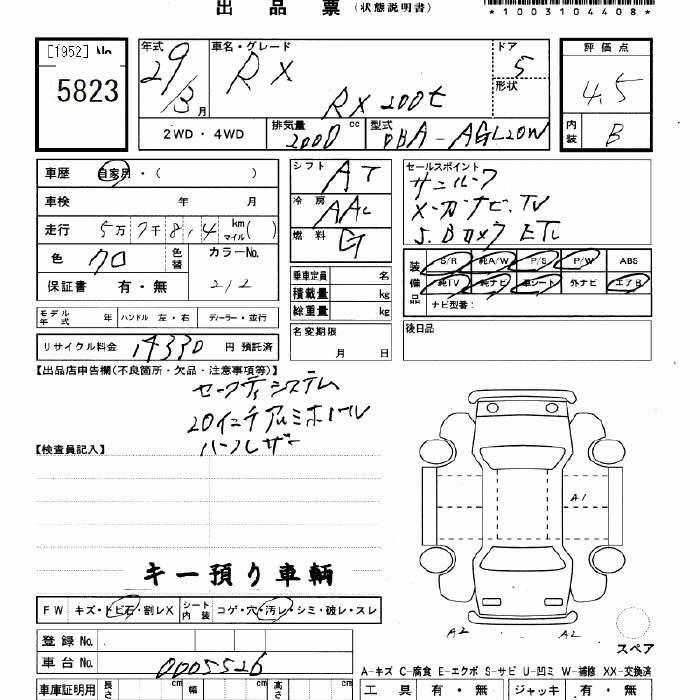 出 品 票 (状態説明書)
*1003104408*
[1952] No.
5823
年式 車名・グレード ドア 評価点
29/3月 RX 5 4.5
形状
RX 200t
2WD・4WD 排気量 2000 cc 型式 DBA-AGL20W 内装 B
車歴 自家用・( )
車検 年 月
走行 5万7千8,4 km マイル( )
色 クロ 色替 カラーNo.
保証書 有・無 212
シフト AT
冷房 AAC
燃料 G
乗車定員 名
積載量 kg
総重量 kg
名変期限
月 日
セールスポイント
サンルーフ
メーカナビ.TV
S.Bカメラ ETC
装備品 S/R 純A/W P/S P/W ABS
純TV 純ナビ 革シート 外ナビ エアB
ナビ型番:
後日品
モデル年式 年 ハンドル 左・右 ディーラー・並行
リサイクル料金 14330 円 預託済
【出品店申告欄(不良箇所・欠品・注意事項等)】
セーフティシステム
20インチアルミホイール
ハーフレザー
【検査員記入】
A1
キー預り車輌
FW キズ・トビ石・割レX シート内装 コゲ・穴・汚レ・シミ・破レ・スレ
登録 No.
A2 A2
スペア
車台 No. 0005526
A-キズ C-腐食 E-エクボ S-サビ U-凹ミ W-補修 XX-交換済
車庫証明用 長さ cm 幅 cm 高さ cm
工具 有・無 ジャッキ 有・無